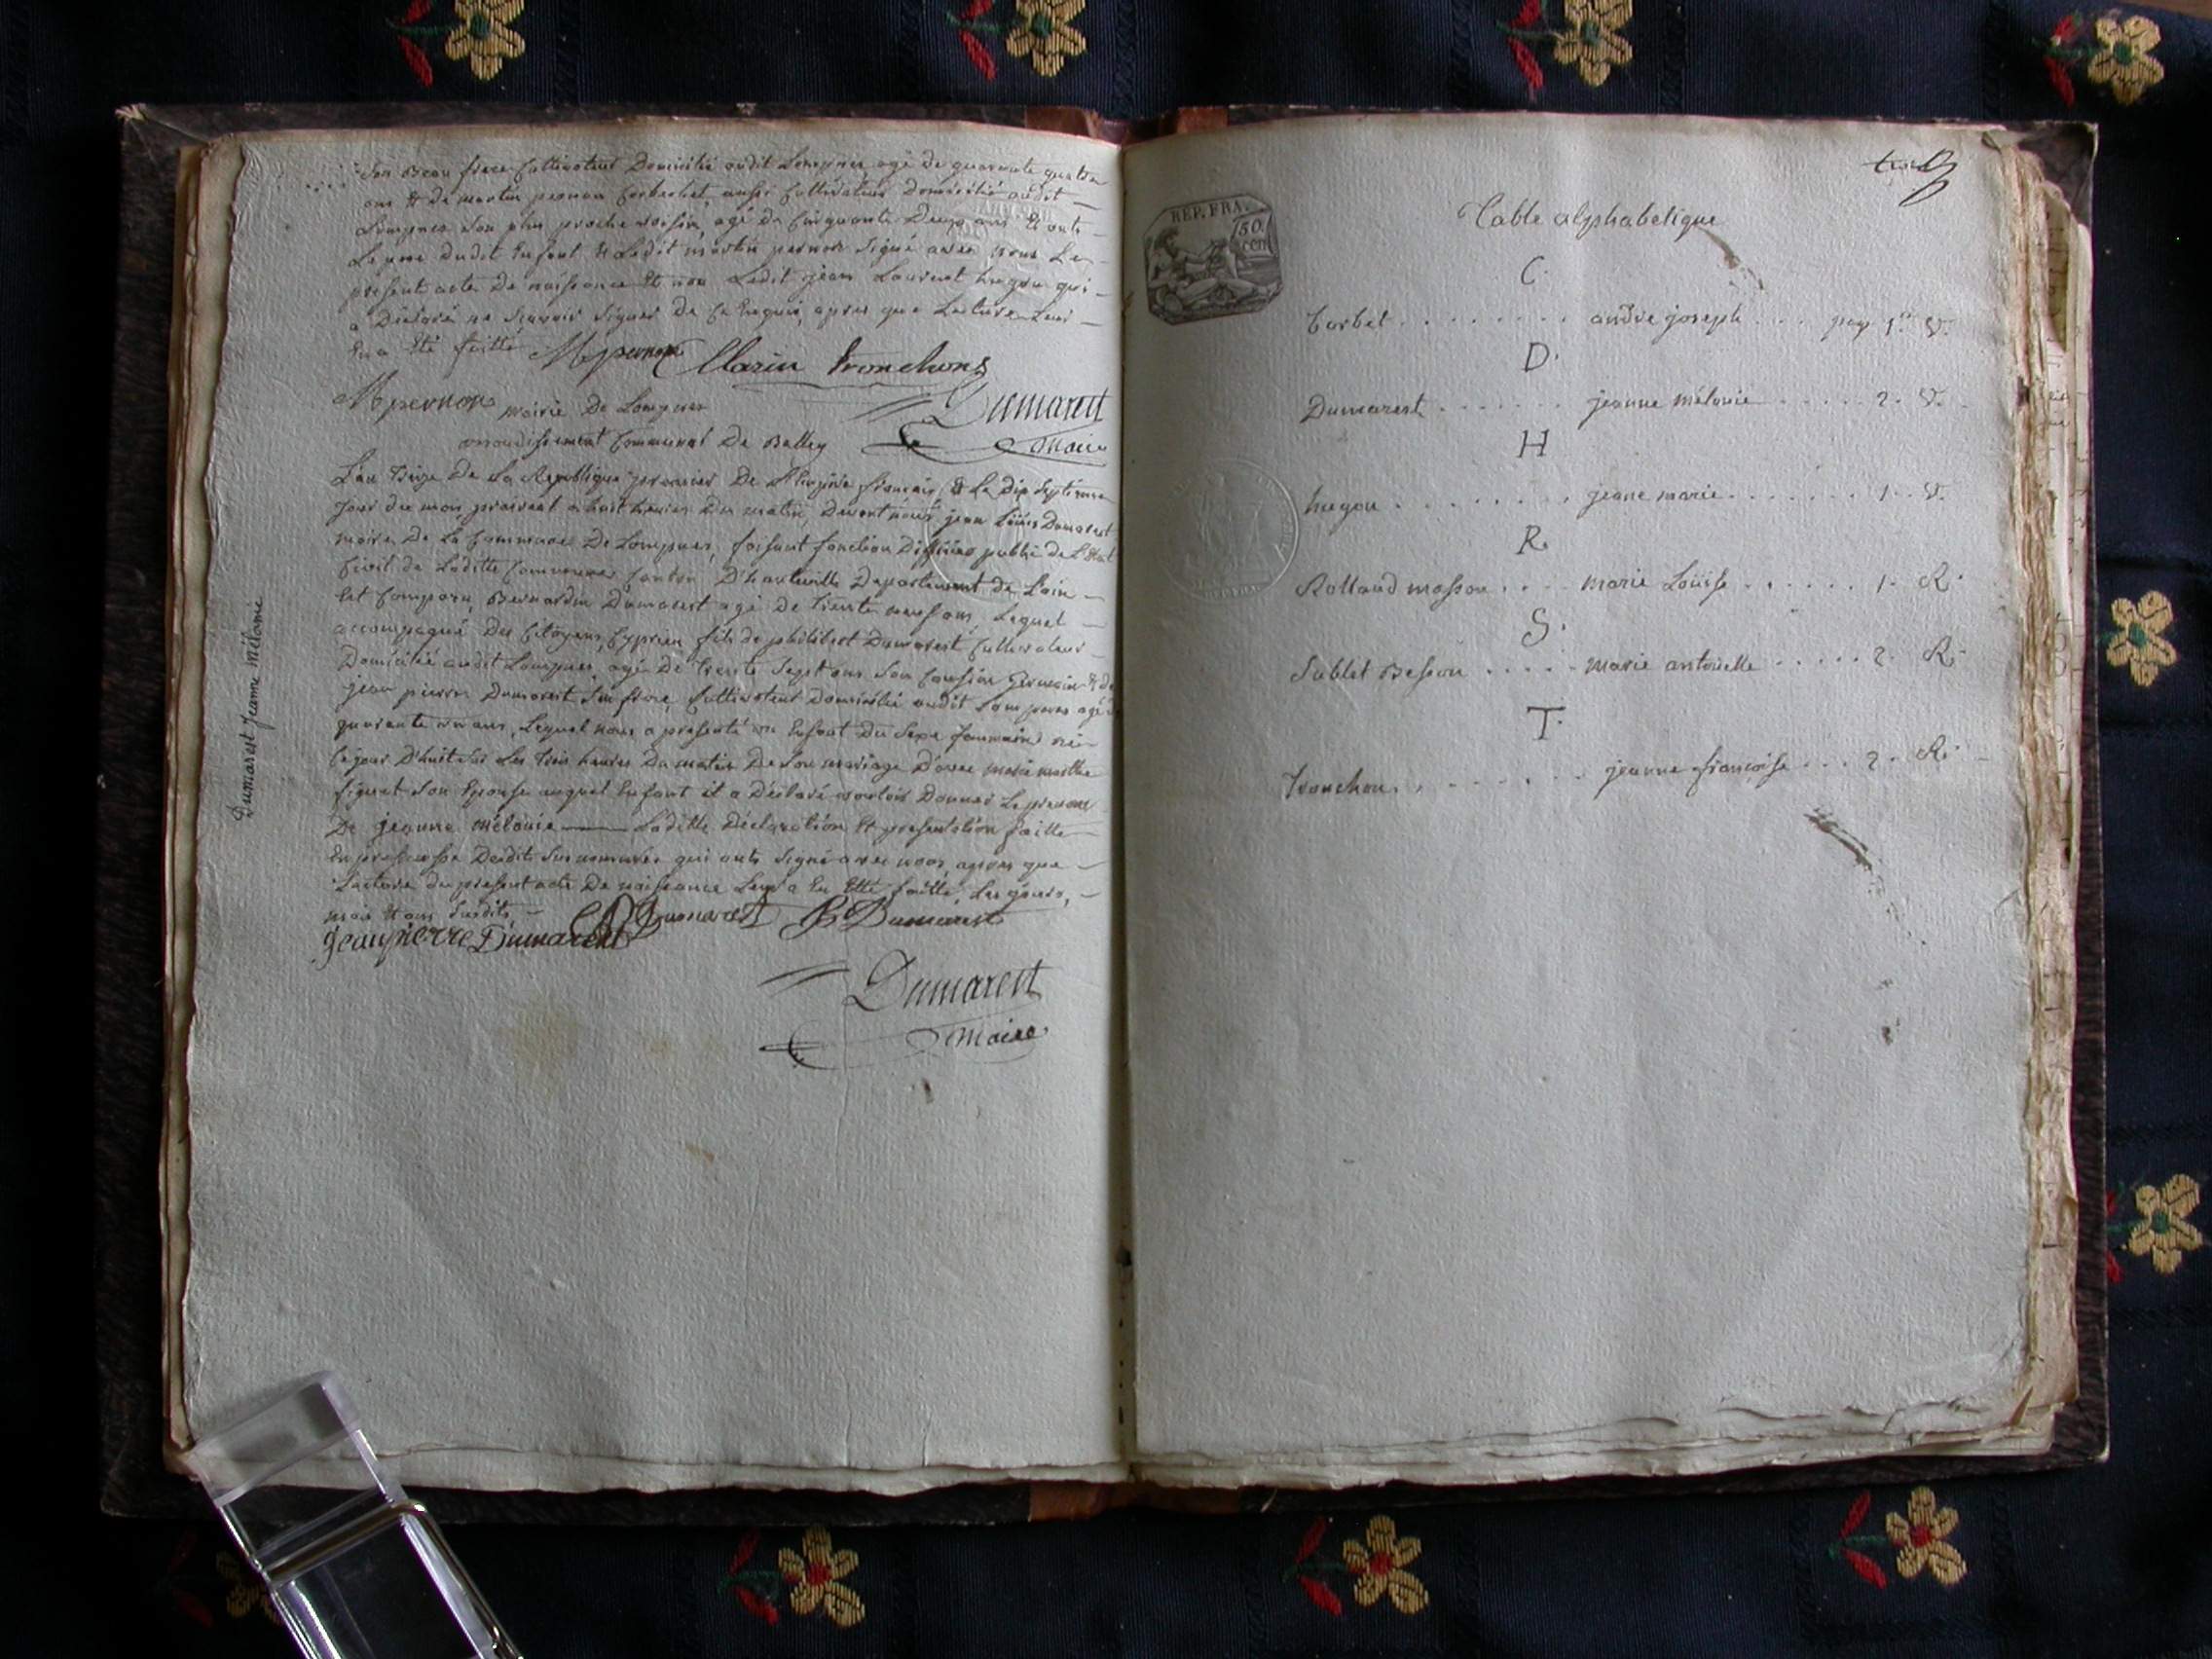 Son Beau frere Cultivateur Domicilié audit Lompnes, agé de quarante quatre
ans & de martin pernon Corbechet, aussi Cultivateur Domicilié audit
Lompnes Son plus proche voisin, agé de Cinquante Deux ans Et onts
Le pere dudit Enfant & Ledit martin pernon Signé avec nous Le
présent acte De naissance Et non Ledit jean Laurent hugon qui
a Déclaré ne Scavoir Signer de Ce Enquis, apres que Lecture Leur
En a Eté faitte Mpernon Clarin tronchons
Mpernon mairie De Lompnes Dumarest
arrondissement Communal De Belley Maire
L'an treize De La Republique premier De L'Empire francais, & Le Dix Septieme
Jour du mois prairial a huit heures Du matin, Devant nous jean Loüis Dumarest
maire De La Commune De Lompnes, faisant fonction D'officier public de L'Etat
Civil de Laditte Commune, Canton D'hauteville Departement de Lain
Est Comparu, Bernardin Dumarest agé De trente neuf ans, Lequel
accompagné Des Citoyens, Cyprien fils de philibert Dumarest Cultivateur
Domicilié audit Lompnes, agé De trente Sept ans Son Cousin Germain & de
jean pierre Dumarest Son frere, Cultivateur Domicilié audit Lompnes agé
quarante un ans, Lequel nous a presenté un Enfant Du Sexe feminin né
Ce jour D'huit Sur Les trois heures Du matin De Son mariage D'avec marie marthe
Siguet Son Epouse auquel Enfant il a Déclaré vouloir Donner Le prenom
De jeanne mélanie Laditte Déclaration Et presentation faitte
En presence Desdits Surnommés qui onts Signé avec nous, apres que
Lecture du present acte De naissance Leur a En Eté faitte, Les jours,
mois & ans Susdits
jeanpierre Dumarest Dumarest Dumarest
Dumarest
Maire
Dumarest Jeanne mélanie
REP. FRA.
50.
cen
Table alphabetique
C.
Corbet . . . . . . . . andré joseph . . . pag 1.re V.
D.
Dumarest . . . . . . . jeanne mélanie . . . . . 2. V.
H
hugon . . . . . . . jeane marie . . . . . . . 1. V.
R.
Rolland masson . . . . marie Loüise . . . . . . 1. R.
S.
Sublet Besson . . . . . marie antoinelle . . . . . 2. R.
T.
tronchon . . . . . . . jeanne françoise . . . 2. R.